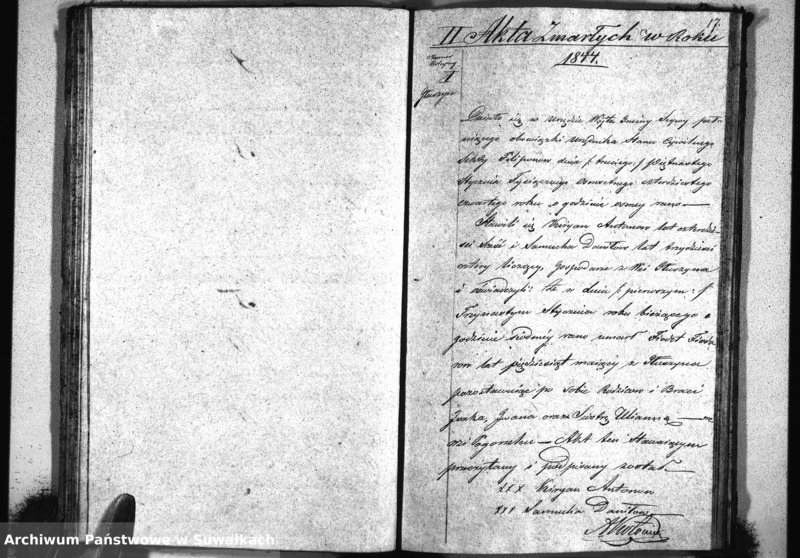 17.
II Akta Zmarłych w Roku
1844.
Numer
1
Działo się w Urzędzie Wójta Gminy peł-
niącego obowiązki Urzędnika Stanu Cywilnego
Sekty Filiponow dnia /: trzeciego :/ piętnastego
Stycznia Tysiącznego Osmsetnego czterdziestego
czwartego roku o godzinie osmey rano —
Stawili się Kiryan Antonow lat czterdzie-
ści i Samuela Daniłow lat trzydzieści
cztery liczący, Gospodarze z Wsi
i oświadczyli: że w dniu /: pierwszym :/
Trzynastym Stycznia roku bieżącego o
godzinie siódmey rano umarł Fiedot
lat pięćdziesiąt maiący z
pozostawiając po sobie Rodziców i Braci
Iwana oraz Siostrę Ulianną —
Akt ten Stawaiącym
przeczytany i podpisany został
XXX Kiryan Antonow
XXX Samuela Daniłow
Archiwum Państwowe w Suwałkach